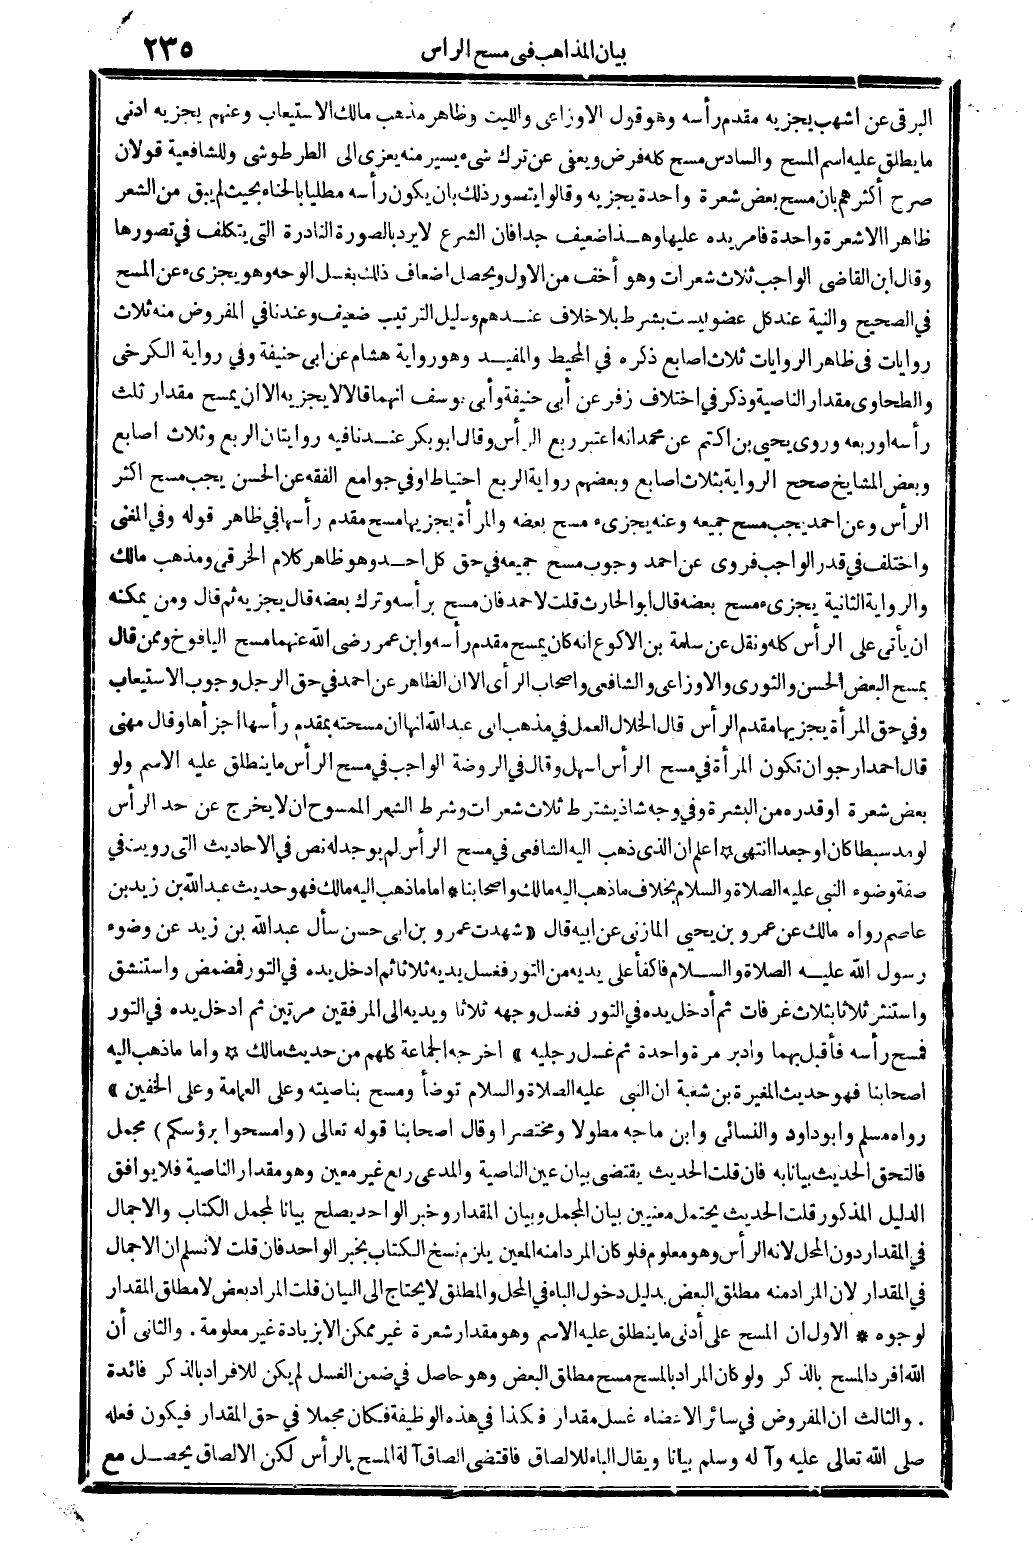 بيان المذاهب فى مسح الرأس ٢٣٥
البرقى عن اشهب يجزيه مقدم رأسه وهو قول الاوزاعى والليث وظاهر مذهب مالك الاستيعاب وعنهم يجزيه ادنى
ما يطلق عليه اسم المسح والسادس مسح كله فرض ويعفى عن ترك شىء يسير منه يعزى الى الطرطوشى وللشافعية قولان
صرح أكثرهم بان مسح بعض شعرة واحدة يجزيه وقالوا يتصور ذلك بان يكون رأسه مطليا بالحناء بحيث لم يبق من الشعر
ظاهر الا شعرة واحدة فامر يده عليها وهذا ضعيف جدا فان الشرع لا يرد بالصورة النادرة التى يتكلف فى تصورها
وقال ابن القاضى الواجب ثلاث شعرات وهو أخف من الاول ويحصل اضعاف ذلك بغسل الوجه وهو يجزىء عن المسح
فى الصحيح والنية عند كل عضو ليست بشرط بلا خلاف عندهم ودليل الترتيب ضعيف وعندنا فى المفروض منه ثلاث
روايات فى ظاهر الروايات ثلاث اصابع ذكره فى المحيط والمفيد وهو رواية هشام عن ابى حنيفة وفى رواية الكرخى
والطحاوى مقدار الناصية وذكر فى اختلاف زفر عن أبى حنيفة وأبى يوسف انهما قالا لا يجزيه الا ان يمسح مقدار ثلث
رأسه او ربعه وروى يحيى بن اكتم عن محمد انه اعتبر ربع الرأس وقال ابو بكر عندنا فيه روايتان الربع وثلاث اصابع
وبعض المشايخ صحح الرواية بثلاث اصابع وبعضهم رواية الربع احتياطا وفى جوامع الفقه عن الحسن يجب مسح اكثر
الرأس وعن احمد يجب مسح جميعه وعنه يجزىء مسح بعضه والمرأة يجزيها مسح مقدم رأسها فى ظاهر قوله وفى المغنى
واختلف فى قدر الواجب فروى عن احمد وجوب مسح جميعه فى حق كل احد وهو ظاهر كلام الخرقى ومذهب مالك
والرواية الثانية يجزىء مسح بعضه قال ابو الحارث قلت لاحمد فان مسح برأسه وترك بعضه قال يجزيه ثم قال ومن يمكنه
ان يأتى على الرأس كله ونقل عن سلمة بن الاكوع انه كان يمسح مقدم رأسه وابن عمر رضى الله عنهما مسح اليافوخ وممن قال
بمسح البعض الحسن والثورى والاوزاعى والشافعى واصحاب الرأى الا ان الظاهر عن احمد فى حق الرجل وجوب الاستيعاب
وفى حق المرأة يجزيها مقدم الرأس قال الخلال العمل فى مذهب ابى عبد الله انها ان مسحته بمقدم رأسها اجزأها وقال مهنى
قال احمد ارجو ان تكون المرأة فى مسح الرأس اسهل وقال فى الروضة الواجب فى مسح الرأس ما ينطلق عليه الاسم ولو
بعض شعرة او قدره من البشرة وفى وجه شاذ يشترط ثلاث شعرات وشرط الشعر الممسوح ان لا يخرج عن حد الرأس
لو مد سبطا كان او جعدا انتهى ✩ اعلم ان الذى ذهب اليه الشافعى فى مسح الرأس لم يوجد له نص فى الاحاديث التى رويت فى
صفة وضوء النبى عليه الصلاة والسلام بخلاف ما ذهب اليه مالك واصحابنا * اما ما ذهب اليه مالك فهو حديث عبد الله بن زيد بن
عاصم رواه مالك عن عمرو بن يحيى المازنى عن ابيه قال « شهدت عمرو بن ابى حسن سأل عبد الله بن زيد عن وضوء
رسول الله عليه الصلاة والسلام فاكفأ على يديه من التور فغسل يديه ثلاثا ثم ادخل يده فى التور فمضمض واستنشق
واستنثر ثلاثا بثلاث غرفات ثم أدخل يده فى التور فغسل وجهه ثلاثا ويديه الى المرفقين مرتين ثم ادخل يده فى التور
فمسح رأسه فأقبل بهما وادبر مرة واحدة ثم غسل رجليه » اخرجه الجماعة كلهم من حديث مالك ✩ واما ما ذهب اليه
اصحابنا فهو حديث المغيرة بن شعبة ان النبى عليه الصلاة والسلام توضأ ومسح بناصيته وعلى العمامة وعلى الخفين »
رواه مسلم وابو داود والنسائى وابن ماجه مطولا ومختصرا وقال اصحابنا قوله تعالى (وامسحوا برؤسكم) مجمل
فالتحق الحديث بيانا به فان قلت الحديث يقتضى بيان عين الناصية والمدعى ربع غير معين وهو مقدار الناصية فلا يوافق
الدليل المذكور قلت الحديث يحتمل معنيين بيان المجمل وبيان المقدار وخبر الواحد يصلح بيانا لمجمل الكتاب والاجمال
فى المقدار دون المحل لانه الرأس وهو معلوم فلو كان المراد منه المعين يلزم نسخ الكتاب بخبر الواحد فان قلت لا نسلم ان الاجمال
فى المقدار لان المراد منه مطلق البعض بدليل دخول الباء فى المحل والمطلق لا يحتاج الى البيان قلت المراد بعض لا مطلق المقدار
لوجوه * الاول ان المسح على أدنى ما ينطلق عليه الاسم وهو مقدار شعرة غير ممكن الا بزيادة غير معلومة . والثانى أن
الله افرد المسح بالذكر ولو كان المراد بالمسح مسح مطلق البعض وهو حاصل فى ضمن الغسل لم يكن للافراد بالذكر فائدة
. والثالث ان المفروض فى سائر الاعضاء غسل مقدار فكذا فى هذه الوظيفة فكان مجملا فى حق المقدار فيكون فعله
صلى الله تعالى عليه وآله وسلم بيانا ويقال الباء للالصاق فاقتضى الصاق آلة المسح بالرأس لكن الالصاق يحصل مع